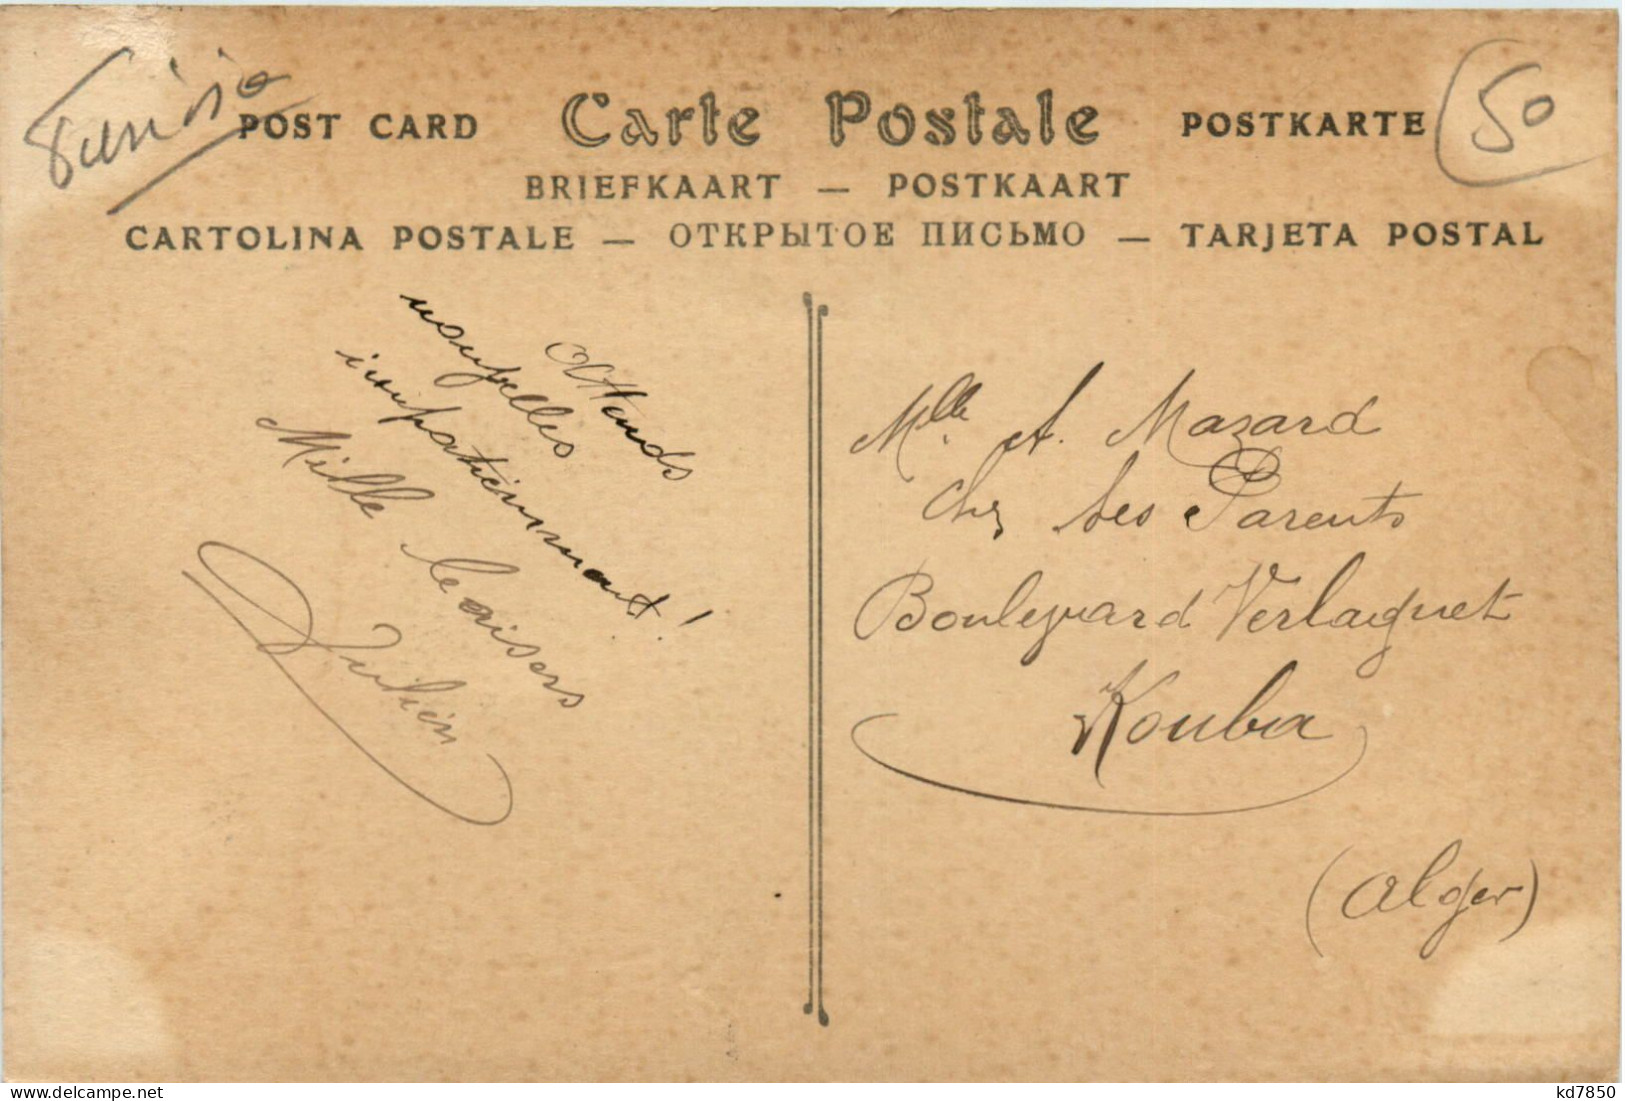 Tunisie
50
POST CARD Carte Postale POSTKARTE
BRIEFKAART — POSTKAART
CARTOLINA POSTALE — ОТКРЫТОЕ ПИСЬМО — TARJETA POSTAL
Attends
nouvelles
impatiemment!
Mille baisers
Julien
Mlle A. Mazard
Chez ses Parents
Boulevard Verlaguet
Kouba
(Alger)
www.delcampe.net
kd7850